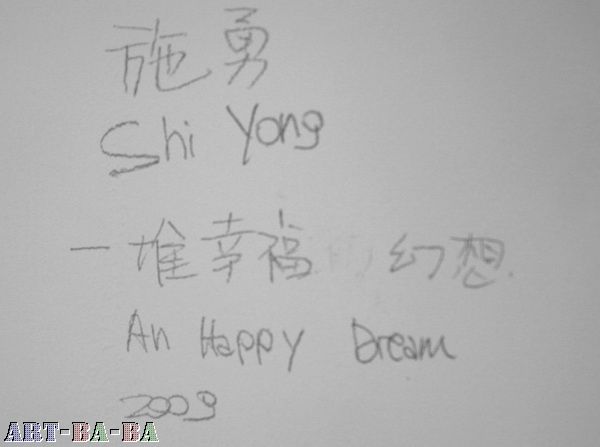 施勇
Shi Yong
一堆幸福 幻想
An Happy Dream
2009
ART-BA-BA